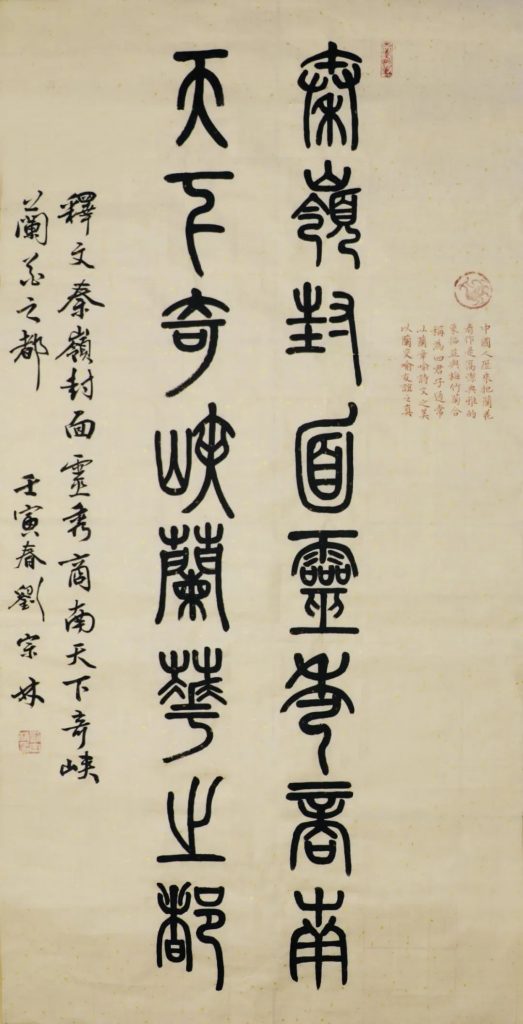 中國人歷來把蘭花
看作是高潔典雅的
象徵並與梅竹蘭合
稱為四君子通常
以蘭章喻詩文之美
以蘭交喻友誼之真
秦嶺封面靈秀商南
天下奇峽蘭華之都
釋文秦嶺封面靈秀商南天下奇峽
蘭花之都 壬寅春劉宗林